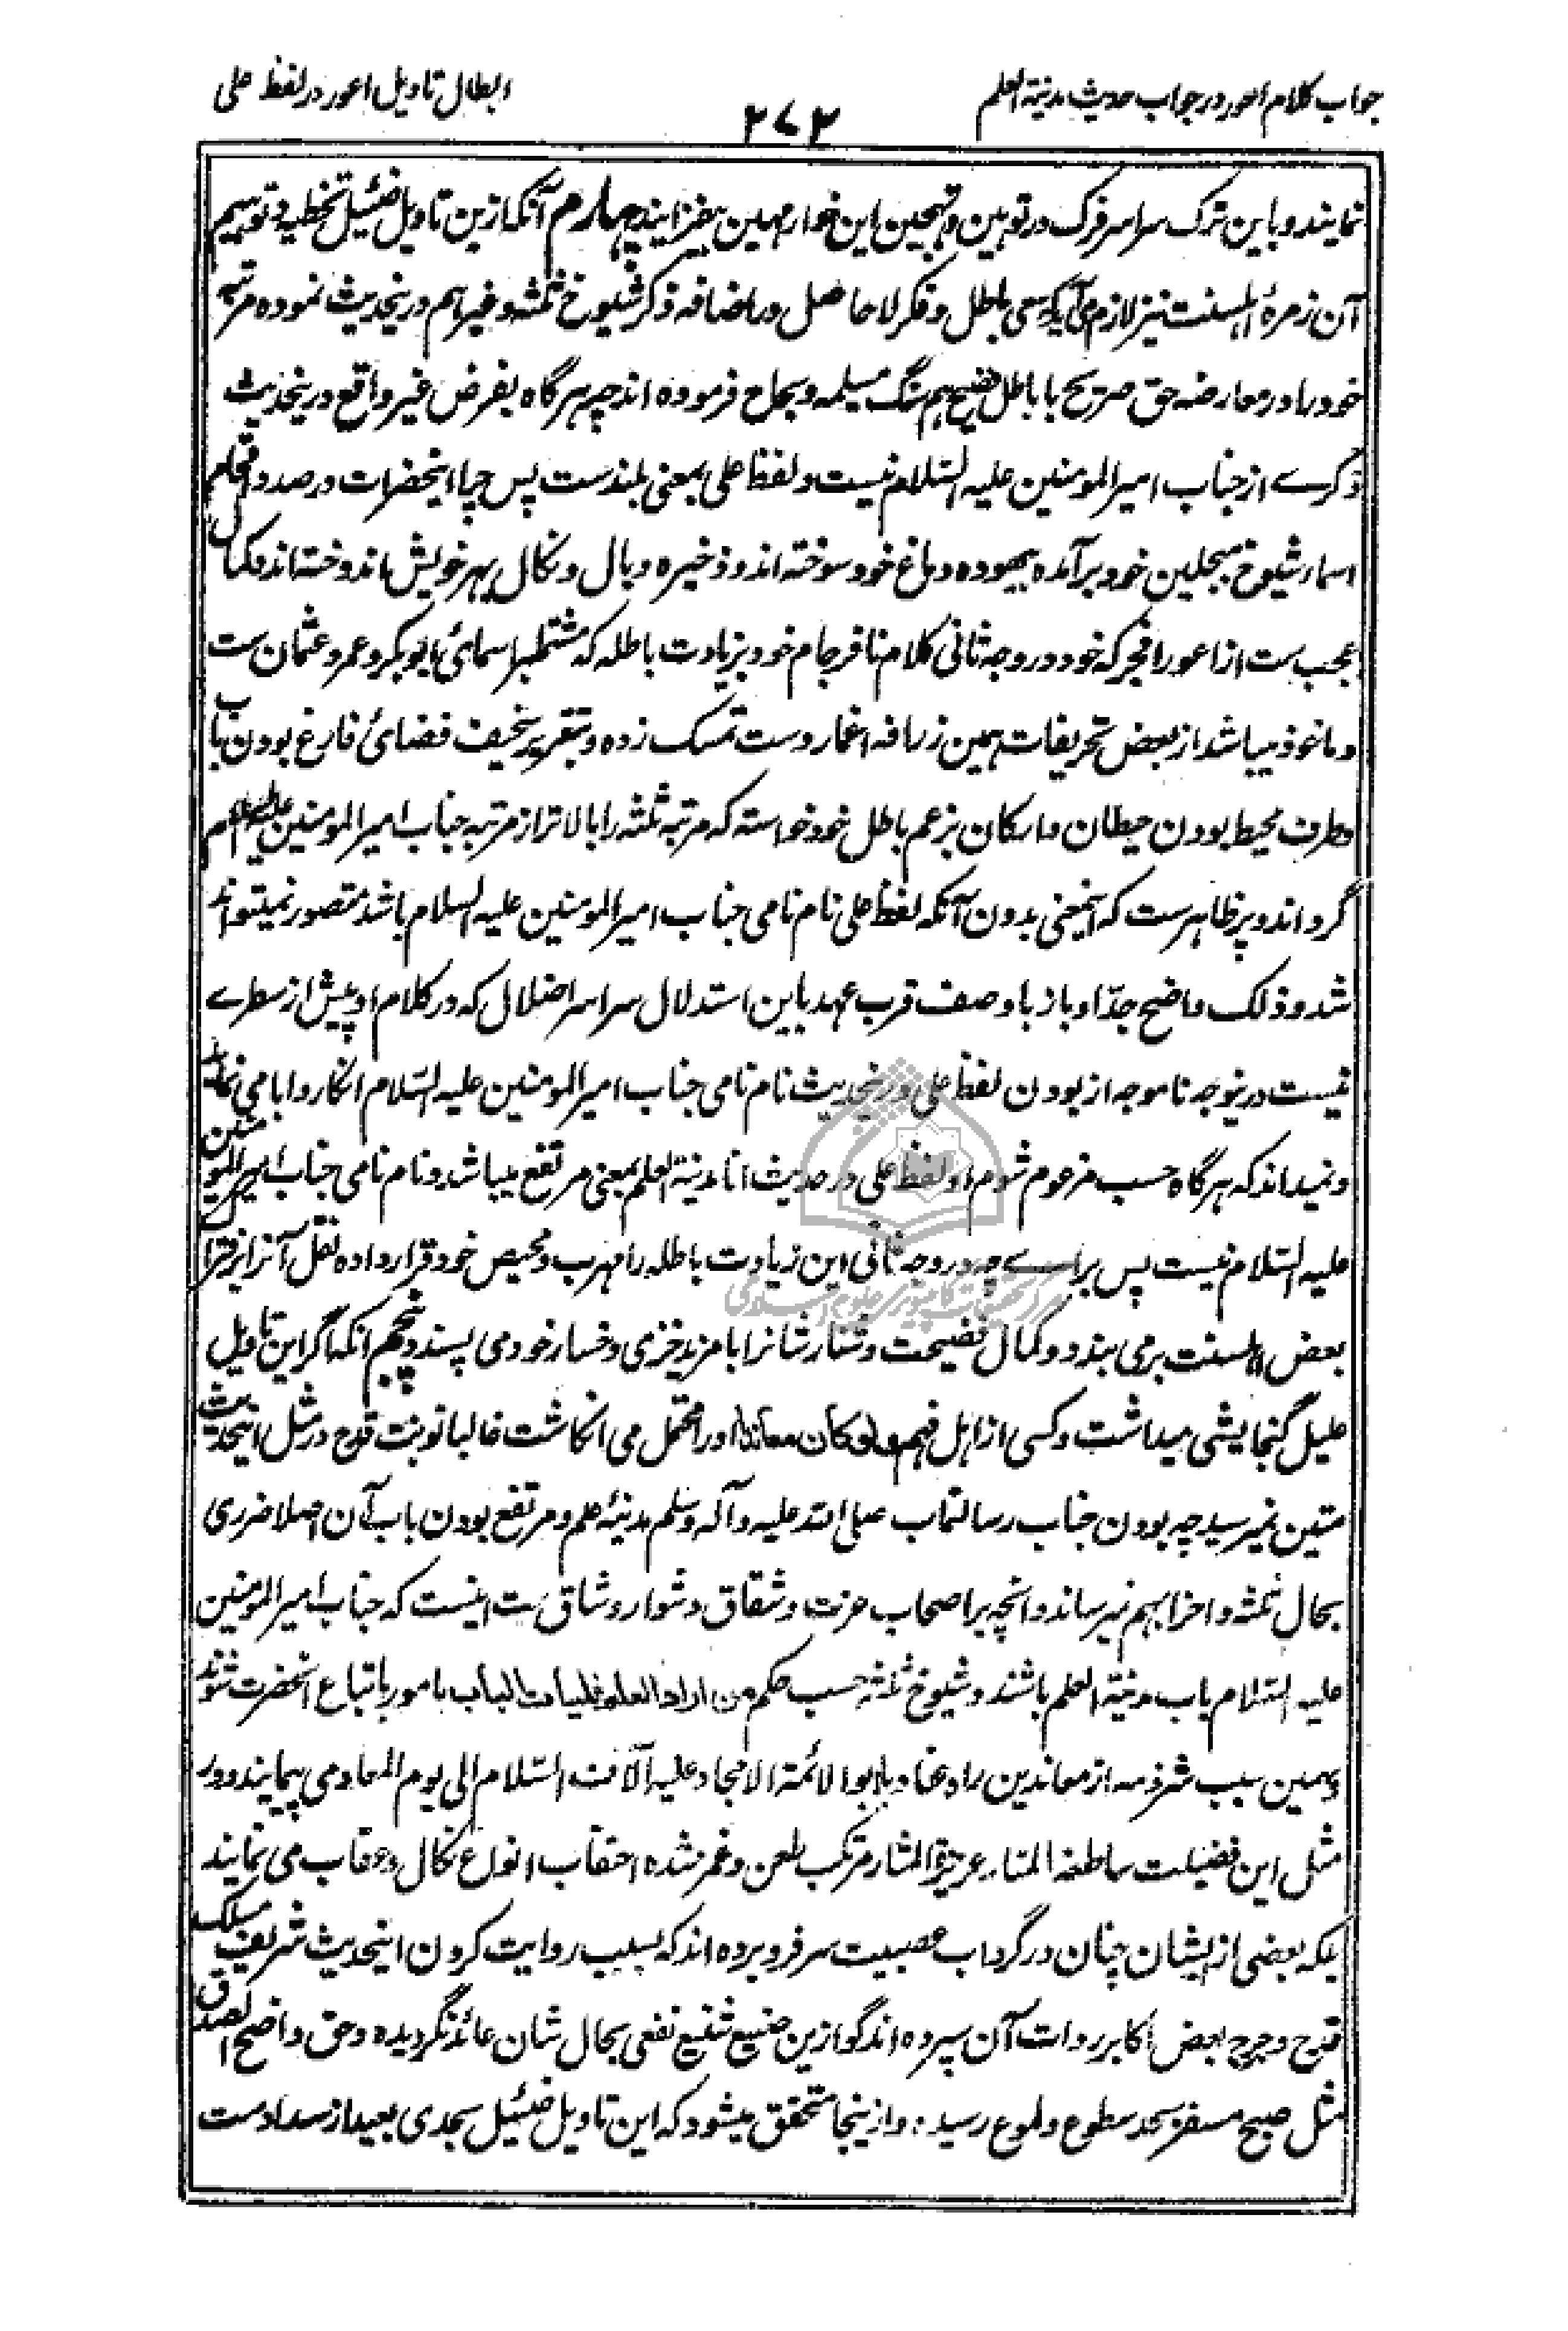 جواب کلام اعور در جواب حدیث مدینة العلم
۲۷۲
ابطال تاویل اعور در لفظ علی
نمایند و باین ترک سراسر فرک در توهین و تهجین این خوار مهین بیفزایند چهارم آنکه ازین تاویل ضئیل تخطیه و توهیم
آن زمرۀ اهلسنت نیز لازم می آید که بسعی باطل و فکر لا حاصل در اضافه ذکر شیوخ ثلثه و غیرهم درینحدیث نموده مرتبه
خود را در معارضه حق صریح با باطل فضیح هم سنگ مسیلمه و سجاح فرموده اند چه هرگاه بفرض غیر واقع درینحدیث
ذکرے از جناب امیرالمومنین علیه السّلام نیست و لفظ علی بمعنی بلندست پس چرا اینحضرات در صدد اقحام
اسماء شیوخ مبجلین خود برآمده بیهوده دماغ خود سوخته اند و ذخیره وبال و نکال بهر خویش اندوخته اند و کمال
عجب ست از اعور افجر که خود در وجه ثانی کلام نافرجام خود بزیادت باطله که مشتمل بر اسمائ ابوبکر و عمر و عثمان ست
و ماخوذ میباشد از بعض تحریفات همین زرافه اغمار دست تمسک زده و بتقریر سخیف فضائ فارغ بودن باب
و طرف محیط بودن حیطان و ارکان بزعم باطل خود خواسته که مرتبه ثلثه را بالاتر از مرتبه جناب امیرالمومنین علیه السلام
گرداند و پر ظاهرست که اینمعنی بدون آنکه لفظ علی نام نامی جناب امیرالمومنین علیه السلام باشد متصور نمیتواند
شد و ذلک واضح جدّا و باز با وصف قرب عهد باین استدلال سراسر اضلال که در کلام او پیش از سطرے
نیست درینوجه ناموجه از بودن لفظ علی درینحدیث نام نامی جناب امیرالمومنین علیه السّلام انکار و ابا می نماید
و نمیداند که هرگاه حسب مزعوم مشوم او لفظ علی در حدیث انا مدینة العلم بمعنی مرتفع میباشد و نام نامی جناب امیرالمومنین
علیه السّلام نیست پس براے چه در وجه ثانی این زیادت باطله را مهرب و محیص خود قرار داده نقل آنرا بر فتراک
بعض اهلسنت بر می بندد و کمال فضیحت و شنار شانرا با مزید خزی و خسار خود می پسندد پنجم آنکه اگر این تاویل
علیل گنجایشی میداشت و کسی از اهل فهم ولو کان معاندا اورا محتمل می انگاشت غالبا نوبت قدح در مثل اینحدیث
متین نمیرسید چه بودن جناب رسالتماب صلی الله علیه و آله وسلم مدینۂ علم و مرتفع بودن باب آن اصلا ضرری
بحال ثلثه و احزابهم نمیرساند و آنچه بر اصحاب مرت و شقاق دشوار و شاق ست اینست که جناب امیرالمومنین
علیه السّلام باب مدینة العلم باشند و شیوخ ثلثه حسب حکم من اراد العلم فلیات الباب مامور باتباع آنحضرت شوند
بهمین سبب شرذمه از معاندین راه عناد با ابو الائمة الامجاد علیه آلاف السّلام الی یوم المعاد می پیمایند و در
مثل این فضیلت ساطعة المنار عزیزة المثار مرتکب طعن و غمز شده احتقاب انواع نکال و عقاب می نمایند
بلکه بعضی از ایشان چنان در گرداب عصبیت سر فرو برده اند که بسبب روایت کردن اینحدیث شریف مسلک
قدح و جرح بعض اکابر روات آن سپرده اند گو ازین صنیع شنیع نفعی بحال شان عائد نگردیده و حق واضح الصدق
مثل صبح مسفر بحد سطوع و لموع رسید: و ازینجا متحقق میشود که این تاویل ضئیل بحدی بعید از سداد ست
مرکز تحقیقات کامپیوتری علوم اسلامی